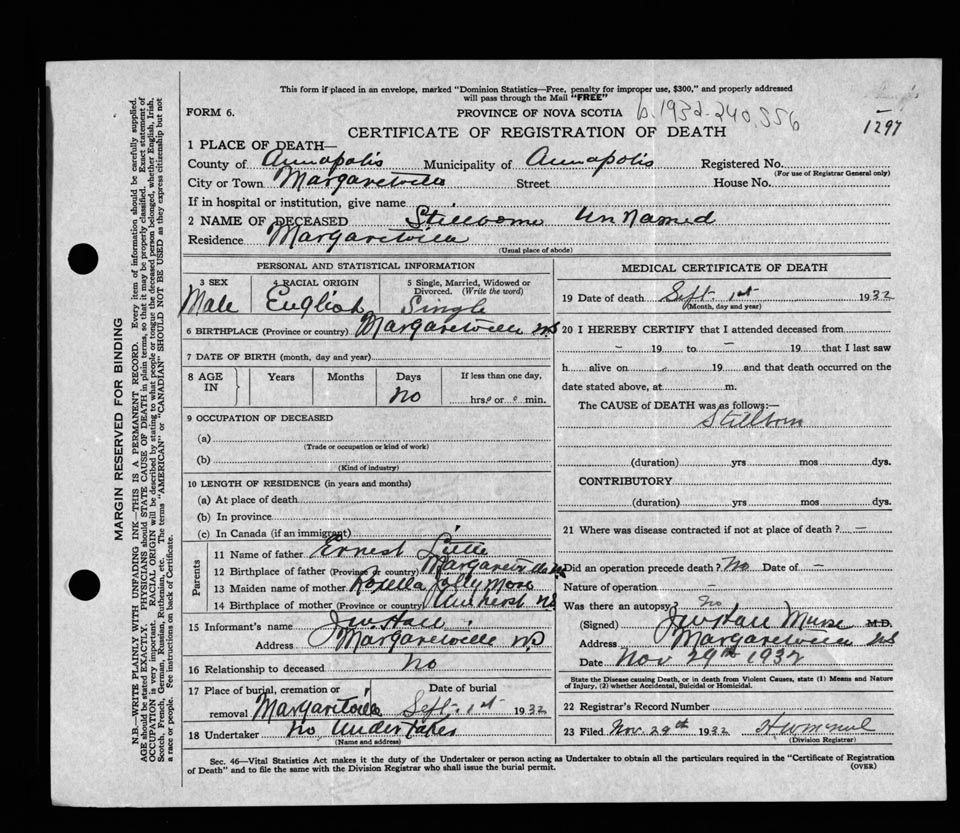 This form if placed in an envelope, marked "Dominion Statistics—Free, penalty for improper use, $300," and properly addressed
will pass through the Mail "FREE"
FORM 6. PROVINCE OF NOVA SCOTIA b. 1932-240.556
1297
CERTIFICATE OF REGISTRATION OF DEATH
1 PLACE OF DEATH—
County of Annapolis Municipality of Annapolis Registered No.
(For use of Registrar General only)
City or Town Margaretville Street House No.
If in hospital or institution, give name
2 NAME OF DECEASED Stillborne Un Named
Residence Margaretville
(Usual place of abode)
PERSONAL AND STATISTICAL INFORMATION
3 SEX 4 RACIAL ORIGIN 5 Single, Married, Widowed or Divorced. (Write the word)
Male English Single
6 BIRTHPLACE (Province or country) Margaretville NS
7 DATE OF BIRTH (month, day and year)
8 AGE IN Years Months Days If less than one day,
No hrs. or min.
9 OCCUPATION OF DECEASED
(a)
(Trade or occupation or kind of work)
(b)
(Kind of industry)
10 LENGTH OF RESIDENCE (in years and months)
(a) At place of death
(b) In province
(c) In Canada (if an immigrant)
Parents
11 Name of father Ernest
12 Birthplace of father (Province or country) Margaretville NS
13 Maiden name of mother Rosella Jollymore
14 Birthplace of mother (Province or country) Amherst NS
15 Informant's name
Address Margaretville NS
16 Relationship to deceased No
17 Place of burial, cremation or removal Margaretville Date of burial Sept. 1st 1932
18 Undertaker No Undertaker
(Name and address)
MEDICAL CERTIFICATE OF DEATH
19 Date of death Sept. 1st 1932
(Month, day and year)
20 I HEREBY CERTIFY that I attended deceased from
– 19 to – 19 that I last saw
h alive on 19 and that death occurred on the
date stated above, at m.
The CAUSE of DEATH was as follows:—
Stillborn
(duration) yrs mos dys.
CONTRIBUTORY
(duration) yrs mos dys.
21 Where was disease contracted if not at place of death? —
Did an operation precede death? No Date of —
Nature of operation –
Was there an autopsy? No
(Signed) Nurse M.D.
Address Margaretville NS
Date Nov 29th 1932
State the Disease causing Death, or in death from Violent Causes, state (1) Means and Nature
of Injury, (2) whether Accidental, Suicidal or Homicidal.
22 Registrar's Record Number
23 Filed Nov. 29th 1932
(Division Registrar)
Sec. 46—Vital Statistics Act makes it the duty of the Undertaker or person acting as Undertaker to obtain all the particulars required in the "Certificate of Registration
of Death" and to file the same with the Division Registrar who shall issue the burial permit. (OVER)
MARGIN RESERVED FOR BINDING
N.B.—WRITE PLAINLY WITH UNFADING INK—THIS IS A PERMANENT RECORD. Every item of information should be carefully supplied.
AGE should be stated EXACTLY. PHYSICIANS should STATE CAUSE OF DEATH in plain terms, so that it may be properly classified. Exact statement of
OCCUPATION is very important. RACIAL ORIGIN will be described by stating to what people or tongue the deceased person belonged, whether English, Irish,
Scotch, French, German, Russian, Ruthenian, etc. The terms "AMERICAN" or "CANADIAN" SHOULD NOT BE USED as they express citizenship but not
a race or people. Fee instructions on back of Certificate.